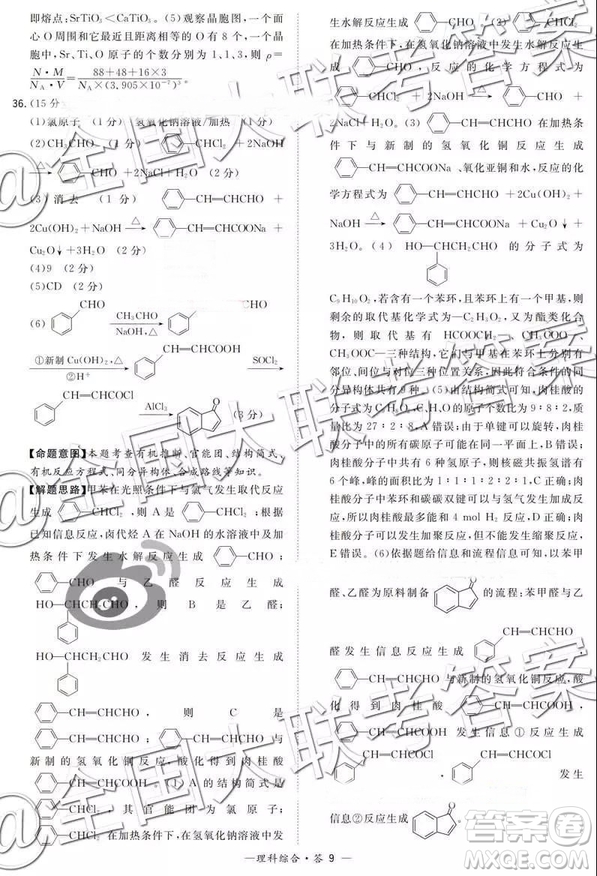 即熔点:SrTiO₃<CaTiO₃。(5)观察晶胞图,一个面
心O周围和它最近且距离相等的O有8个,一个晶
胞中,Sr、Ti、O原子的个数分别为1、1、3,则ρ=
N·M/(N_A·V)=(88+48+16×3)/(N_A×(3.905×10⁻⁸)³)。
36.(15分)
(1)氯原子 (1分) 氢氧化钠溶液/加热 (1分)
(2)CH₃CHO (1分) CHCl₂+2NaOH
△→ CHO+2NaCl+H₂O (2分)
(3)消去 (1分) CH═CHCHO+
2Cu(OH)₂+NaOH △→ CH═CHCOONa+
Cu₂O↓+3H₂O (2分)
(4)9 (2分)
(5)CD (2分)
(6) CHO CH₃CHO NaOH,△ CH═CHCHO
①新制Cu(OH)₂,△ ②H⁺ CH═CHCOOH SOCl₂
CH═CHCOCl AlCl₃ O (3分)
【命题意图】本题考查有机推断、官能团、结构简式、
有机反应方程式、同分异构体、合成路线等知识。
【解题思路】甲苯在光照条件下与氯气发生取代反应
生成 CHCl₂,则A是 CHCl₂;根
据已知信息反应,卤代烃A在NaOH的水溶液中及加
热条件下发生水解反应生成 CHO;
CHO 与乙醛反应生成
HO—CHCH₂CHO,则B是乙醛;
HO—CHCH₂CHO 发生消去反应生成
CH═CHCHO,则C是
CH═CHCHO; CH═CHCHO与
新制的氢氧化铜反应、酸化得到肉桂酸
CH═CHCOOH。(1)A的结构简式是
CHCl₂,其官能团为氯原子;
CHCl₂在加热条件下,在氢氧化钠溶液中发
生水解反应生成 CHO。(2) CHCl₂
在加热条件下,在氢氧化钠溶液中发生水解反应生成
CHO,反应的化学方程式为
CHCl₂+2NaOH △→ CHO+
2NaCl+H₂O。(3) CH═CHCHO在加热条件
下与新制的氢氧化铜反应生成
CH═CHCOONa、氧化亚铜和水,反应的化
学方程式为 CH═CHCHO+2Cu(OH)₂+
NaOH △→ CH═CHCOONa+Cu₂O↓+
3H₂O。(4) HO—CHCH₂CHO 的分子式为
C₉H₁₀O₂,若含有一个苯环,且苯环上有一个甲基,则
剩余的取代基化学式为—C₂H₃O₂,又为酯类化合
物,则取代基有HCOOCH₂—、CH₃COO—、
CH₃OOC—三种结构,它们与甲基在苯环上分别有
邻位、间位与对位三种位置关系,因此符合条件的同
分异构体共有9种。(5)由结构简式可知,肉桂酸的
分子式为C₉H₈O₂,C、H、O原子的个数比为9∶8∶2,
质量比为27∶2∶8,A错误;由于单键可以旋转,肉桂
酸分子中的所有碳原子可能不在同一平面上,B错误;
肉桂酸分子中共有6种氢原子,则核磁共振氢谱有
6个峰,峰面积之比为1∶1∶1∶2∶2∶1,C正确;肉桂
酸分子中苯环和碳碳双键可以与氢气发生加成反应,
所以肉桂酸最多能和4 mol H₂反应,D正确;肉桂酸
可以发生加聚反应,但不能发生缩聚反应,
E错误。(6)依据题给信息和流程信息可知,以苯甲
醛、乙醛为原料制备 O 的流程:苯甲醛与乙
醛发生信息反应生成 CH═CHCHO,
CH═CHCHO 与新制的氢氧化铜反应,酸
化得到肉桂酸 CH═CHCOOH,
CH═CHCOOH 发生信息①反应生成
CH═CHCOCl, CH═CHCOCl 发生
信息②反应生成 O 。
—理科综合·答 9—
@全国大联考答案
@全国大联考答案
@全国大联考答案
答案圈
MXQE.COM